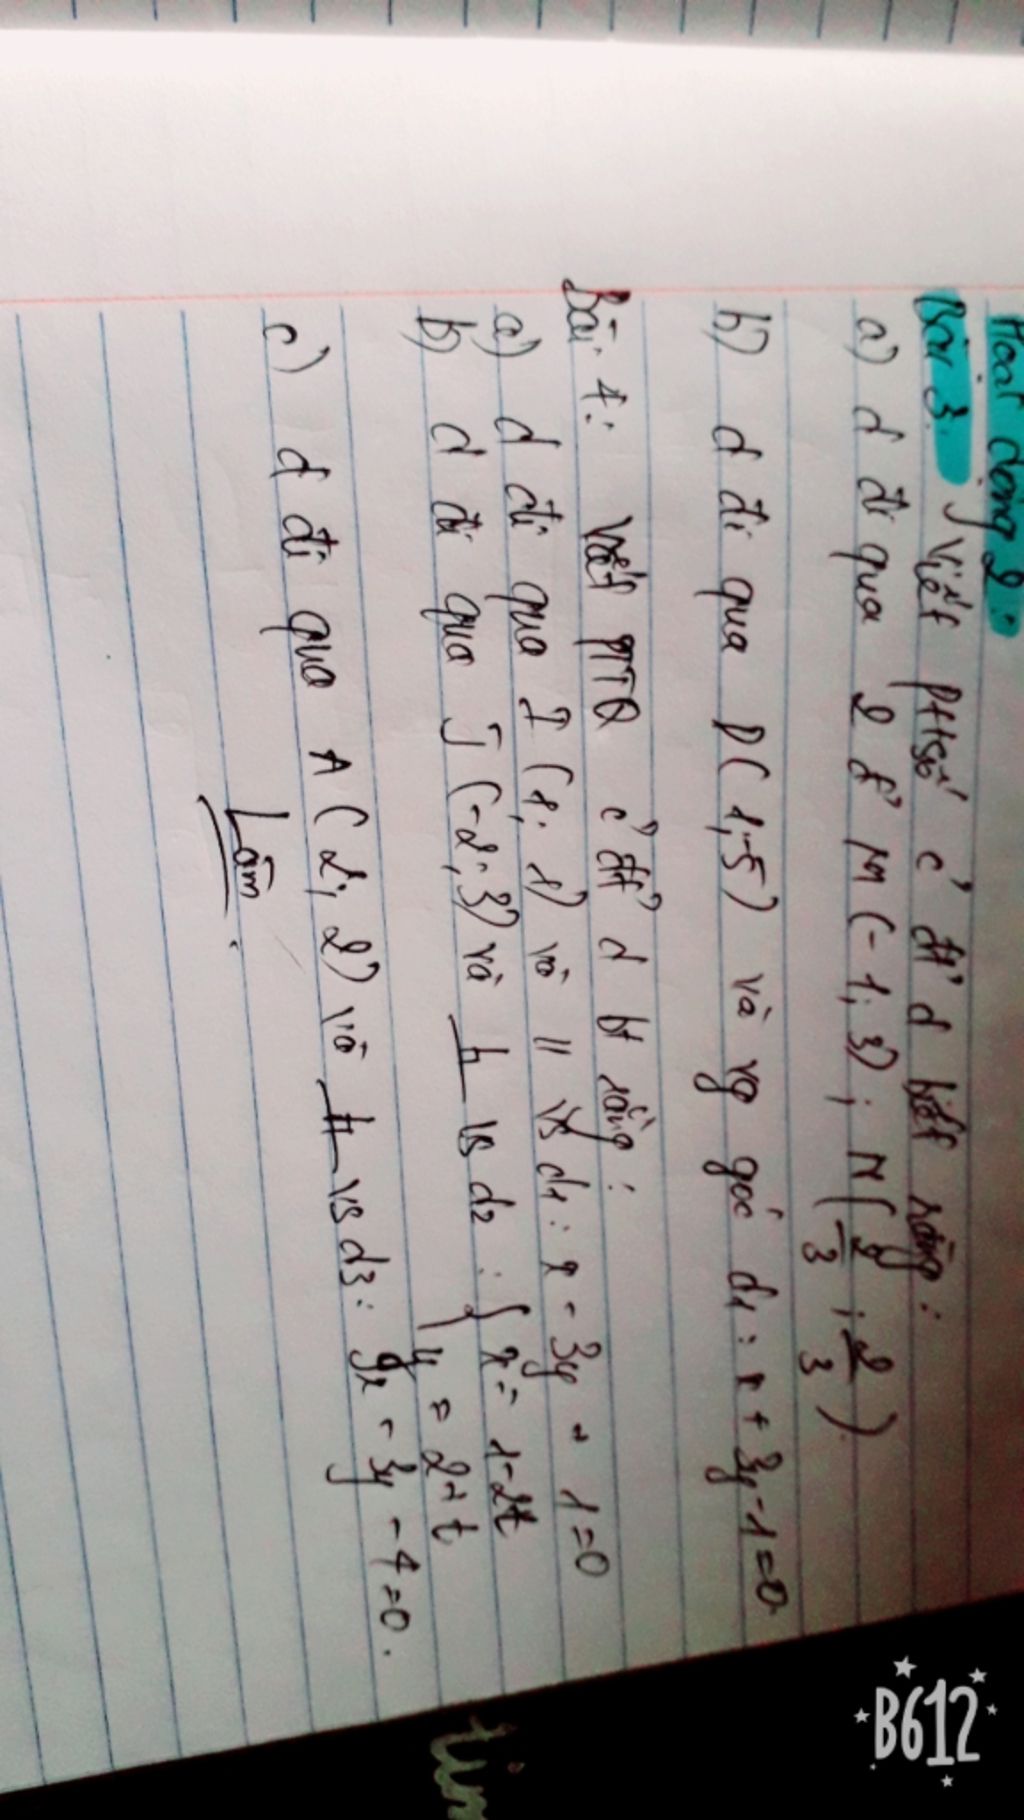 Hoạt động 2:
Bài 3. Viết ptts c' đt' d biết rằng:
a) d đi qua 2 đ' M(-1; 3); N(2/3; 2/3).
b) d đi qua P(1;-5) và vg góc d1: x + 3y - 1 = 0.
Bài 4: Viết PTTQ c' đt' d bt rằng:
a) d đi qua I (1; 1) và // vs d1: x - 3y - 1 = 0
b) d đi qua J (-2; 3) và ⊥ vs d2: { x = 1 - 2t
y = 2 + t
c) d đi qua A (2; 2) và ⊥ vs d3: 9x - 3y - 4 = 0.
Làm.
B612